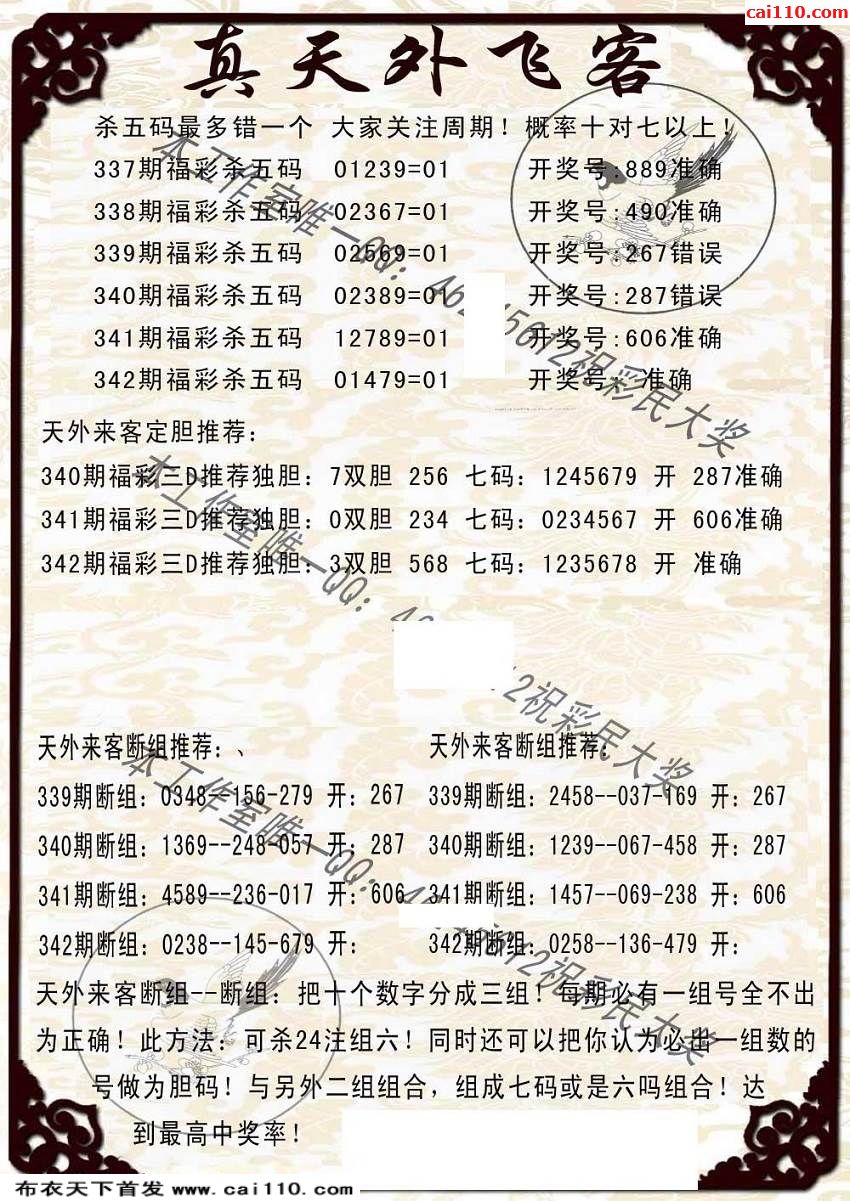 cai110.com
真天外飞客
杀五码最多错一个 大家关注周期！概率十对七以上！
337期福彩杀五码 01239=01 开奖号:889准确
338期福彩杀五码 02367=01 开奖号:490准确
339期福彩杀五码 02569=01 开奖号:267错误
340期福彩杀五码 02389=01 开奖号:287错误
341期福彩杀五码 12789=01 开奖号:606准确
342期福彩杀五码 01479=01 开奖号: 准确
天外来客定胆推荐：
340期福彩三D推荐独胆：7双胆 256 七码：1245679 开 287准确
341期福彩三D推荐独胆：0双胆 234 七码：0234567 开 606准确
342期福彩三D推荐独胆：3双胆 568 七码：1235678 开 准确
天外来客断组推荐：、 天外来客断组推荐：
339期断组：0348--156-279 开：267 339期断组：2458--037-169 开：267
340期断组：1369--248-057 开：287 340期断组：1239--067-458 开：287
341期断组：4589--236-017 开：606 341期断组：1457--069-238 开：606
342期断组：0238--145-679 开： 342期断组：0258--136-479 开：
天外来客断组--断组：把十个数字分成三组！每期必有一组号全不出
为正确！此方法：可杀24注组六！同时还可以把你认为必出一组数的
号做为胆码！与另外二组组合，组成七码或是六吗组合！达
到最高中奖率！
本工作室唯一QQ：
祝彩民大奖
本工作室唯一QQ：
祝彩民大奖
本工作室唯一QQ：
祝彩民大奖
布衣天下首发 www.cai110.com